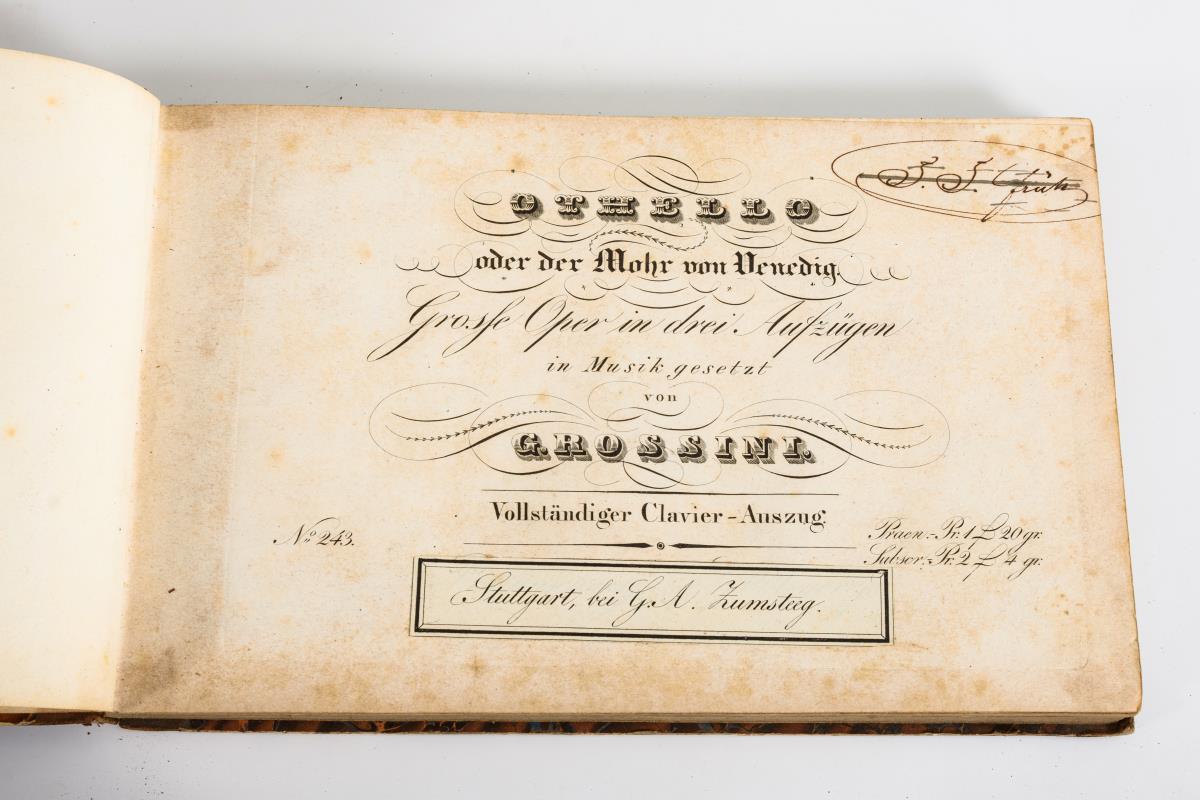 OTHELLO
oder der Mohr von Venedig.
Grosse Oper in drei Aufzügen
in Musik gesetzt
von
G. ROSSINI.
Vollständiger Clavier-Auszug.
No 243.
Praen.-Pr. 1 f 20 gr.
Subscr.-Pr. 2 f 4 gr.
Stuttgart, bei G. A. Zumsteeg.